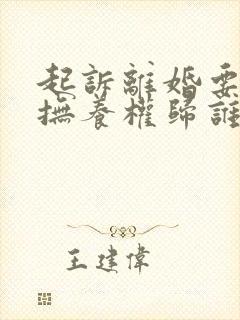 起訴離婚要
撫養權歸誰
王建偉